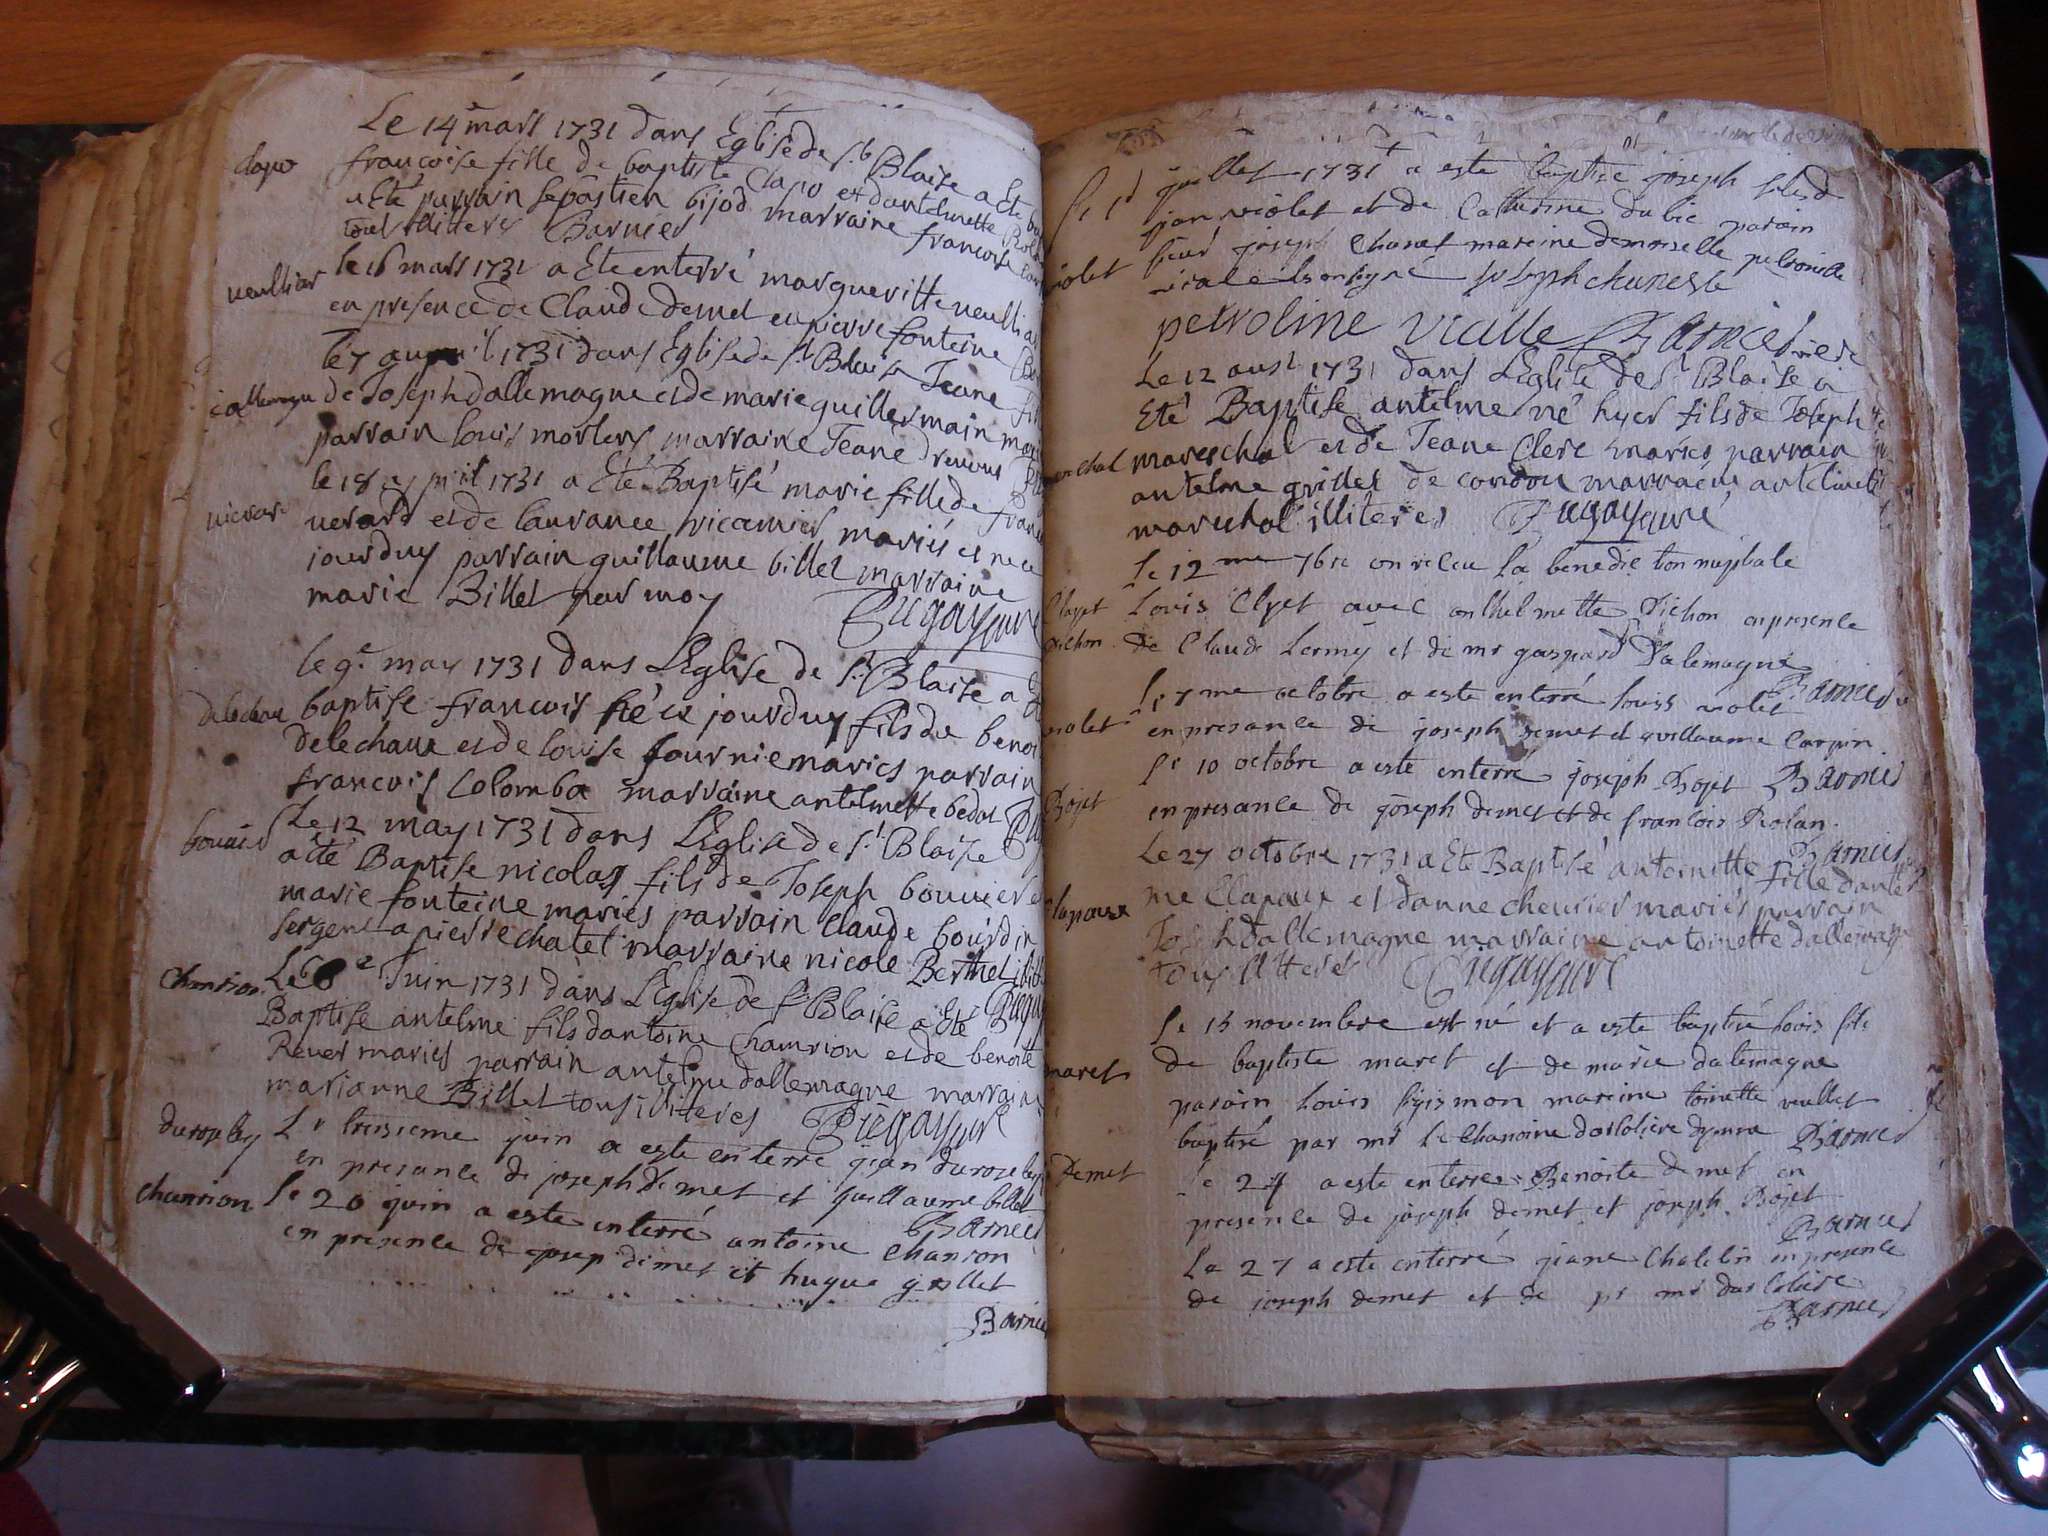 Le 14e mars 1731 dans Eglise de st Blaise a Ete
clapo
francoise fille de baptiste Clapo et dantelmette
a Eté parrain sepastien bijod marraine francoise
tous illiteres Barnier
le 16 mars 1731 a Ete enterré margueritte veullier
veullier
en presence de Claude demet eu pierre fonteine
Le 7 auril 1731 dans Eglise de st Blaise Jeane
dallemagne
de Joseph dallemagne et de marie guillermain
parrain louis morlens marraine Jeane
le 18 apvril 1731 a Eté Baptisé marie fille de
verard et de laurance vicarnier mariés et ne ce
jourduy parrain guillaume billet marraine
marie Billet par moy
le 9e may 1731 dans LEglise de st Blaise a
baptise francois né ce jourduy fils de benoi
delechaux et de louise fournie maries parrain
francois Colomba marraine antelmette bedat
Le 12 may 1731 dans LEglise de st Blaise
bouuier
a eté Baptise nicolas fils de Joseph bouuier
marie fonteine mariés parrain Claude bourdin
sergent a pierre chatel marraine nicole Berthet
Le Juin 1731 dans LEglise de st Blaise a Eté
chanrion
Baptise antelme fils dantoine Chamrion et de benoite
Reuer mariés parrain antelme dallemagne marraine
marianne Billet tous illiteres
Le troisieme juin a este enterré jean
en presance de joseph demet et guillaume billet
Barnier
chanrion
le 20 juin a este enterré antoine Chanrion
en presence de josep demet et hugue grillet
Barnier
juillet 1731 a este baptisé joseph fils d
jan violet et de Catherine dubie parain
sieur joseph Chanet mareine demoiselle petronille
violet
joseph chunet
petroline vialle Barnier
Le 12 aust 1731 dans LEglise de st Blaise a
Eté Baptise antelme né hyer fils de Joseph
mareschal et de Jeane Clerc mariés parrain
antelme grillet de condon marraine
mareschal illiteres
le 12me 7bre on reseu la benediction nuptiale
Clapet
Louis Clapet avec anthelmette Pichon en presence
pichon
de Claude Lermy et de mr gaspard Dalemagne
Barnier
le 7me octobre a este enterré louis violet
violet
en presance de joseph demet et guillaume Carpin
le 10 octobre a este enterré joseph Bojet Barnier
Bojet
en presance de joseph demet et de francois Rolan
Barnier
Le 27 octobre 1731 a Ete Baptisé antoinette fille dantel
me Clapaux et danne cheurier mariés parrain
clapaux
Joseph dallemagne marraine antoinette dallemagne
tous illiteres
le 15 novembre est né et a este baptisé louis fils
de baptiste maret et de marie dalemagne
maret
parain louis sigismon mareine toinette veullet
baptisé par mr le Chanoine Barnier
Demet
le 24 a este enterree Benoite demet en
presence de joseph demet et joseph Bojet
Barnier
Le 27 a este enterré jeane Chatelin en presence
de joseph demet et de
Barnier